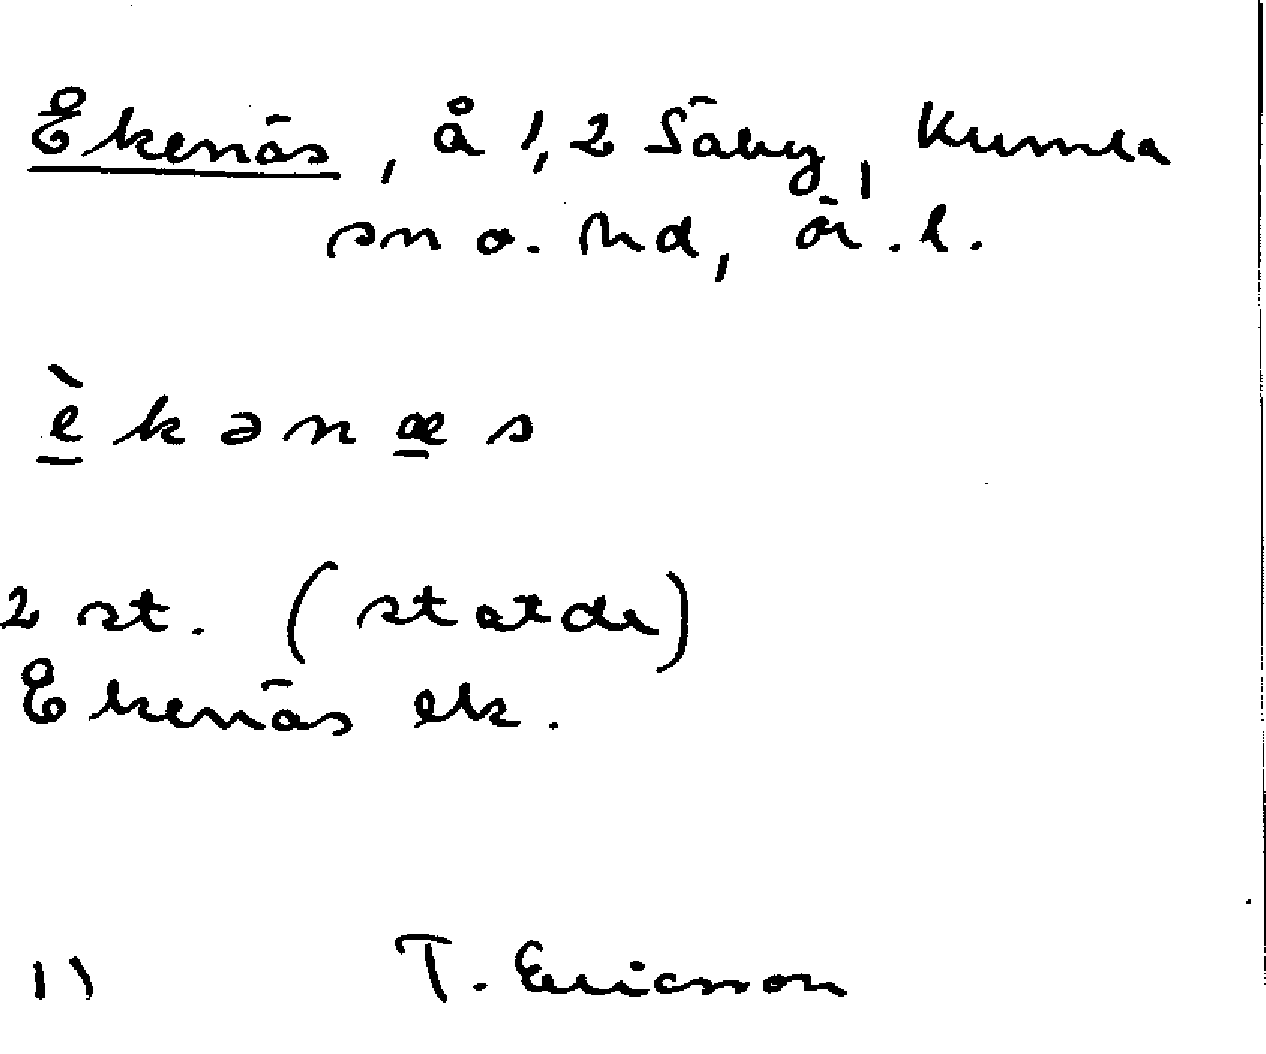 Ekenäs, å 1,2 Säby, Kumla
sn o. hd, ör. l.
è k ə n æ s
2 st. (statde)
Ekenäs ek.
11 T. Ericsson